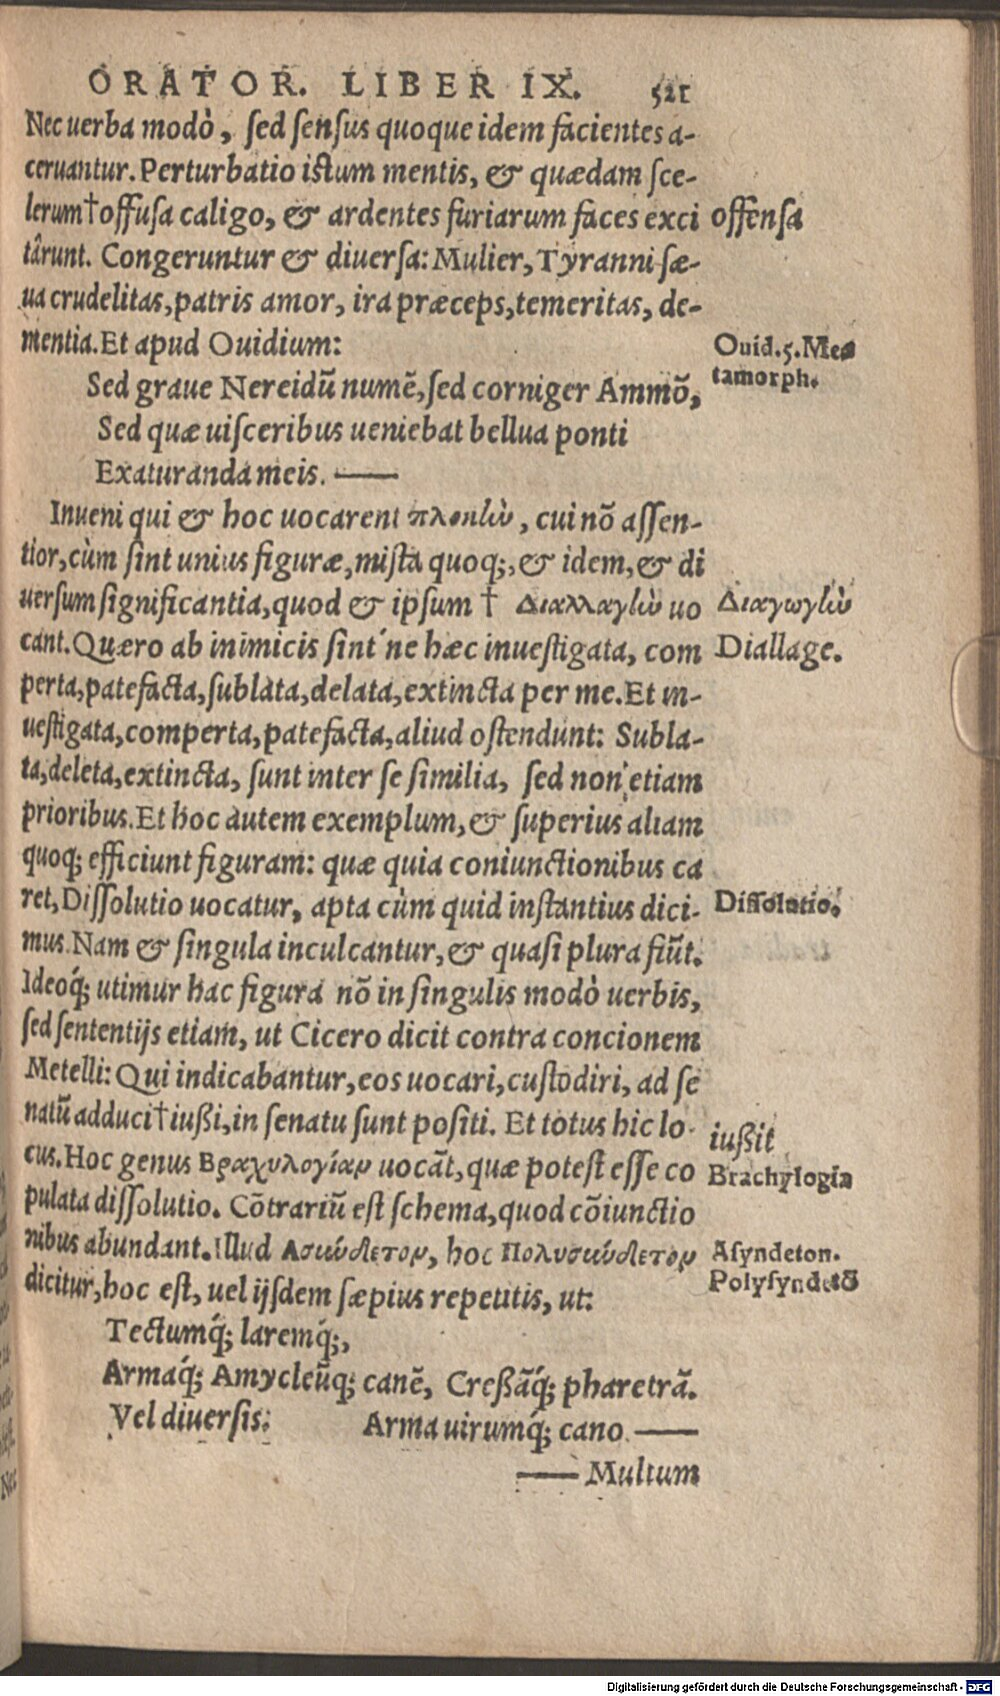 ORATOR. LIBER IX. 521
Nec uerba modò, sed sensus quoque idem facientes a-
ceruantur. Perturbatio istum mentis, & quædam sce-
lerum†offusa caligo, & ardentes furiarum faces exci
offensa
târunt. Congeruntur & diuersa: Mulier, Tyranni sæ-
ua crudelitas, patris amor, ira præceps, temeritas, de-
mentia. Et apud Ouidium:
Ouid. 5. Me
tamorph.
Sed graue Nereidũ numẽ, sed corniger Ammõ,
Sed quæ uisceribus ueniebat bellua ponti
Exaturanda meis. ——
Inueni qui & hoc uocarent πλοκὴν, cui nõ assen-
tior, cùm sint unius figuræ, mista quoq;, & idem, & di
uersum significantia, quod & ipsum † Διαλλαγὴν uo
Διαγωγὴν
cant. Quæro ab inimicis sint'ne hæc inuestigata, com
Diallage.
perta, patefacta, sublata, delata, extincta per me. Et in-
uestigata, comperta, patefacta, aliud ostendunt: Subla-
ta, deleta, extincta, sunt inter se similia, sed non etiam
prioribus. Et hoc autem exemplum, & superius aliam
quoq; efficiunt figuram: quæ quia coniunctionibus ca
ret, Dissolutio uocatur, apta cùm quid instantius dici-
Dissolutio.
mus. Nam & singula inculcantur, & quasi plura fiũt.
Ideoq́; utimur hac figura nõ in singulis modò uerbis,
sed sententijs etiam, ut Cicero dicit contra concionem
Metelli: Qui indicabantur, eos uocari, custodiri, ad se
natũ adduci†iußi, in senatu sunt positi. Et totus hic lo-
iußit
cus. Hoc genus Βραχυλογίαν uocãt, quæ potest esse co
Brachylogia
pulata dissolutio. Cõtrariũ est schema, quod cõiunctio
nibus abundant. Illud Ασύνδετον, hoc Πολυσύνδετον
Asyndeton.
dicitur, hoc est, uel ijsdem sæpius repetitis, ut:
Polysyndetõ
Tectumq́; laremq́;,
Armaq́; Amycleũq; canẽ, Creßãq́; pharetrã.
Vel diuersis: Arma uirumq́; cano. ——
—— Multum
Digitalisierung gefördert durch die Deutsche Forschungsgemeinschaft - DFG